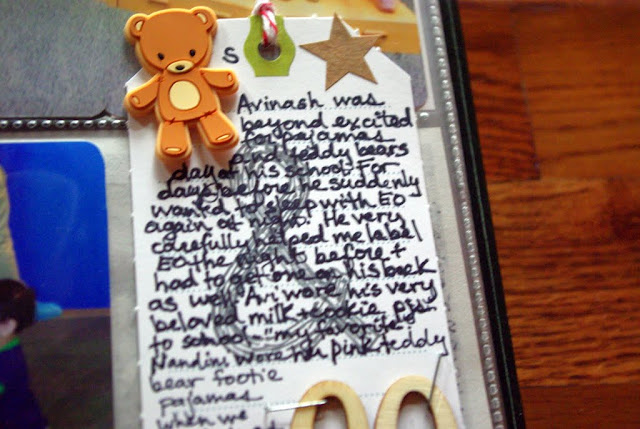 s
Avinash was
beyond excited
for pajamas
and teddy bears
day at his school. For
days before he suddenly
wanted to sleep with EO
again at night! He very
carefully helped me label
EO the night before +
had to get one on his back
as well. Avi wore his very
beloved milk + cookie pjs
to school - "my favorite."
Nandini wore her pink teddy
bear footie
pajamas
when we